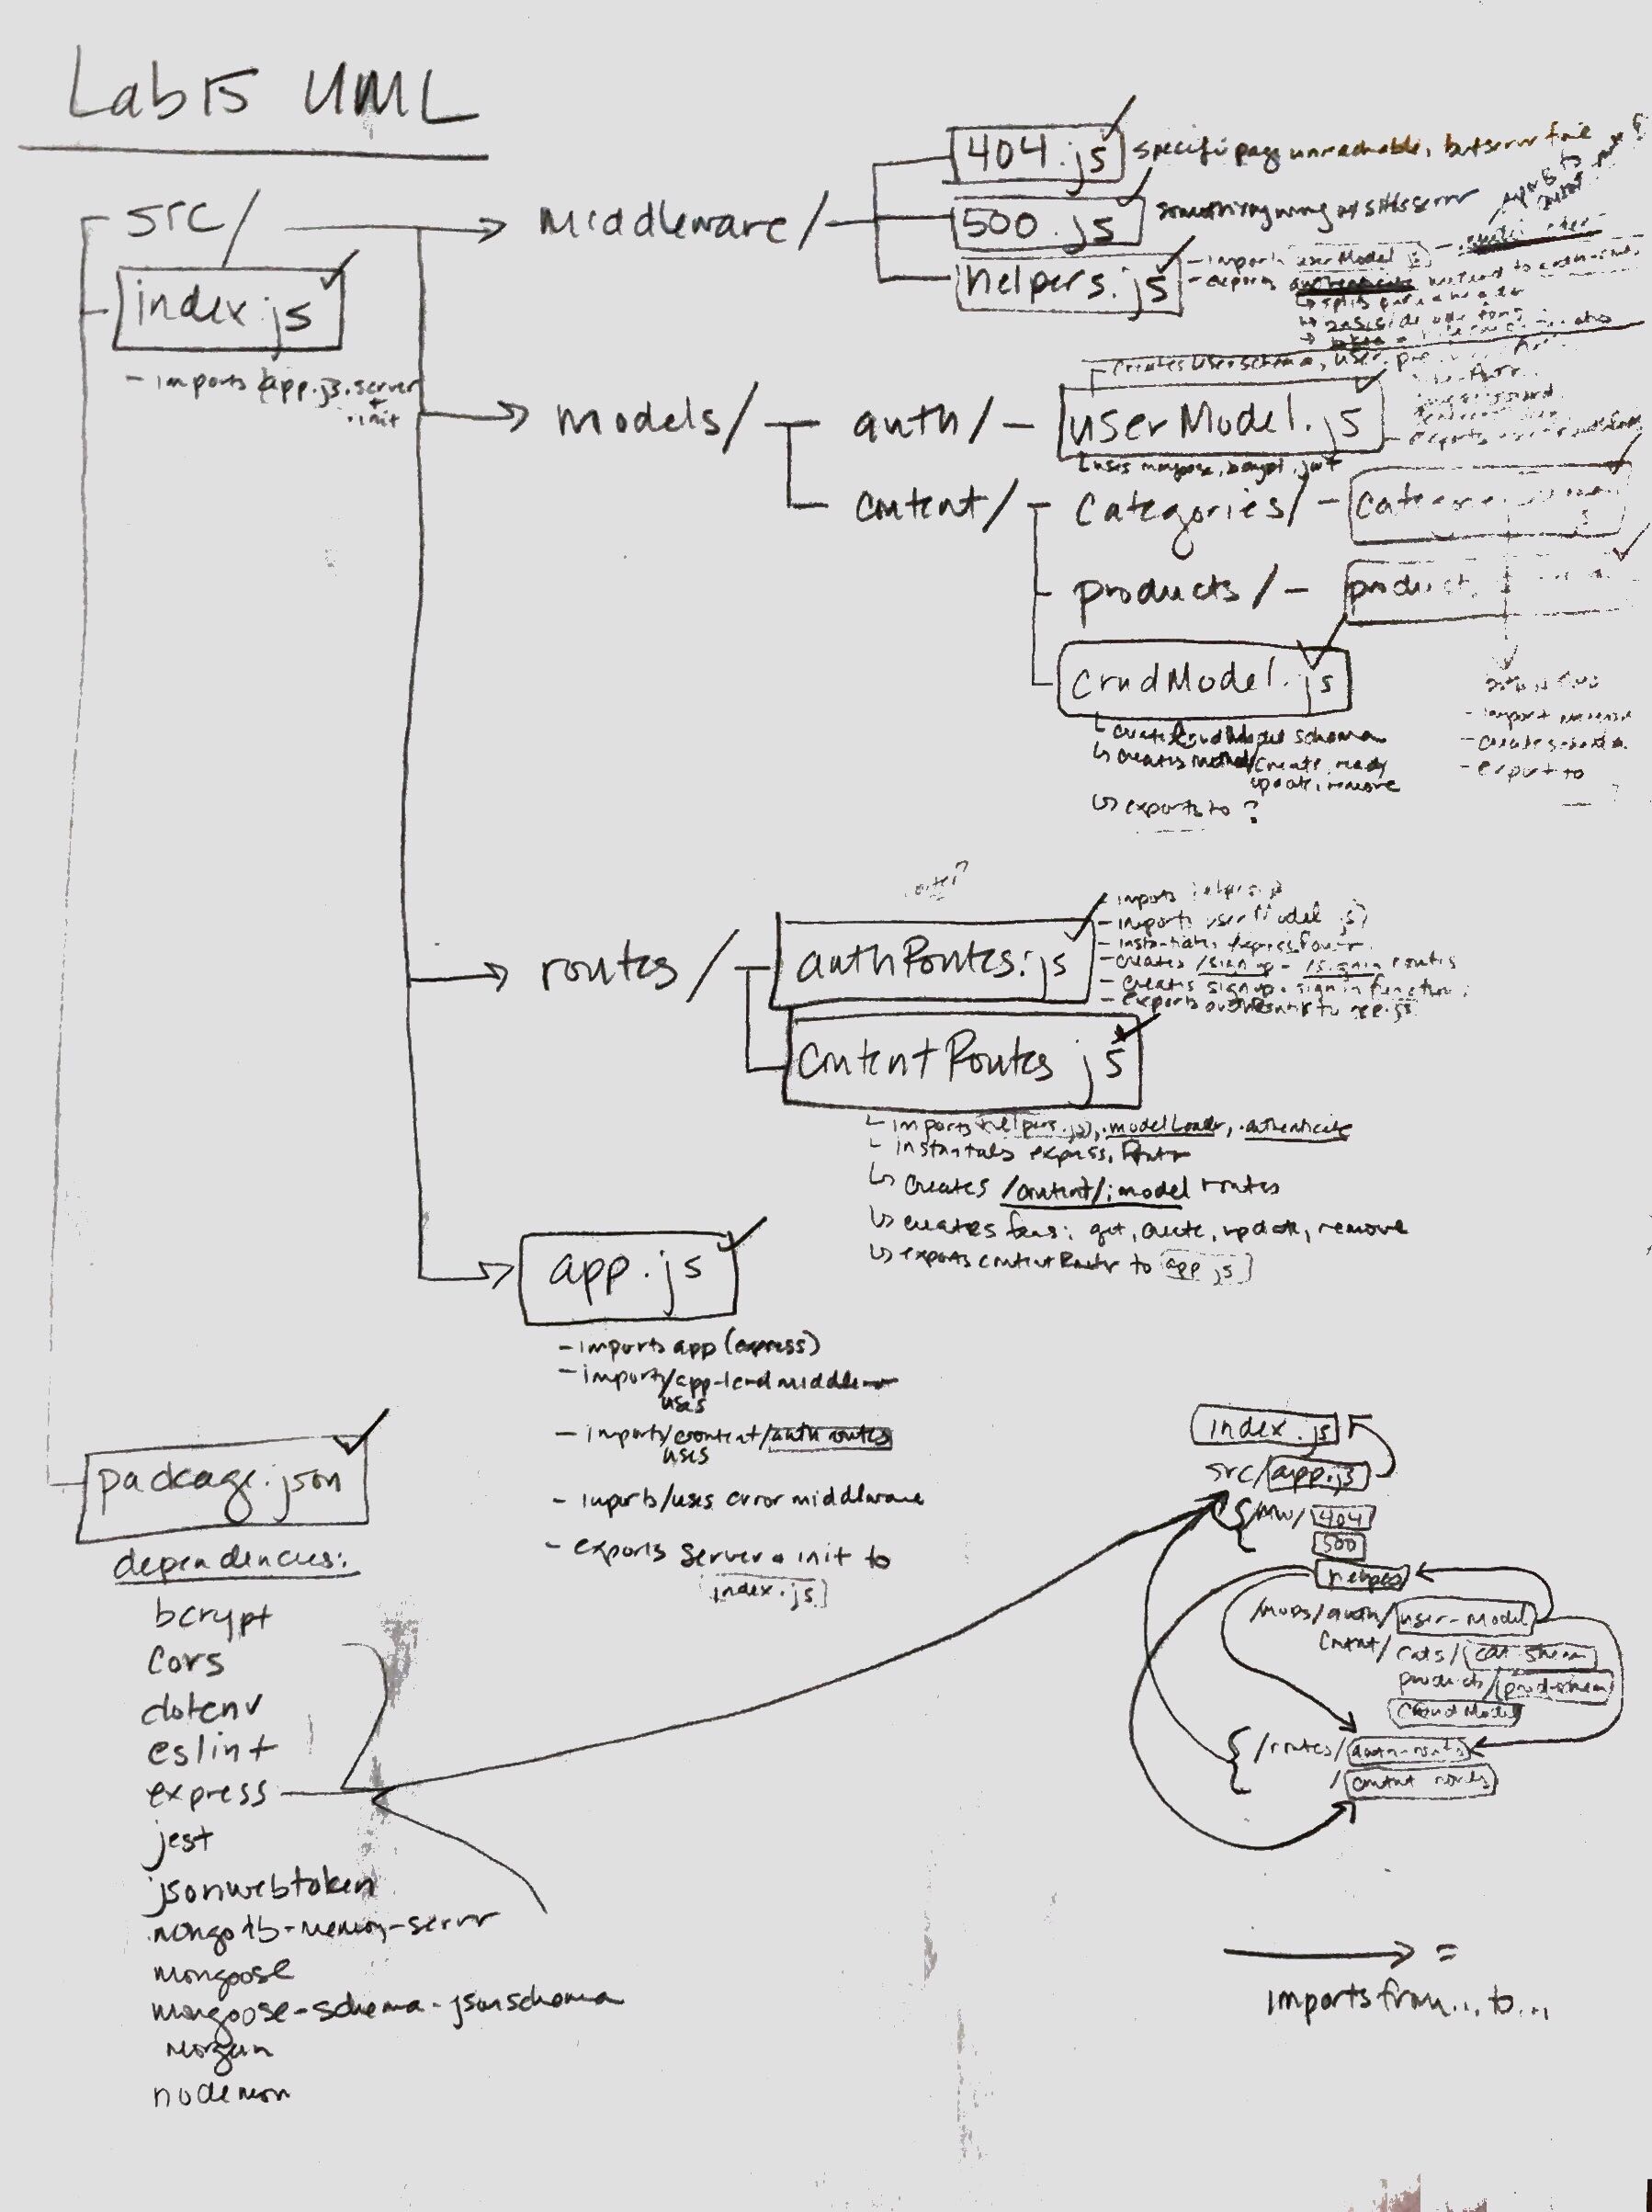 Lab 15 UML
src/
index.js
- imports app.js.server
+
.init
middleware/
404.js
specific page unreachable, but server fine
500.js
something wrong w/ site's server
helpers.js
- imports userModel js
- exports
models/
auth/ -
userModel.js
creates User schema, user
uses mongoose, bcrypt, jwt
content/
categories/ -
products/ -
product
crudModel.js
create CrudModel schema
creates method/create, ready
update, remove
exports to ?
- import
- create schema
- export to
routes/
authRoutes.js
- imports helpers.js
- imports userModel js
- instantiates express Router
- creates /signup - /signin routes
- creates signup + signin functions
- exports authRouter to app.js
contentRoutes js
imports helpers.js, .modelLoader, .authenticate
instantiates express, Router
creates /content/:model routes
creates fxns: get, create, update, remove
exports contentRouter to app js
app.js
- imports app (express)
- imports/app-level middle
uses
- imports/content/auth routes
uses
- imports/uses error middleware
- exports server + init to
index.js
package.json
dependencies:
bcrypt
cors
dotenv
eslint
express
jest
jsonwebtoken
mongodb-memory-server
mongoose
mongoose-schema-jsonschema
morgan
nodemon
index.js
src/app.js
/MW/ 404
500
helpers
/mods/auth/user-model
content/cats/cat-schem
products/prod-schem
CrudModel
/routes/auth-routes
/content routes
=
imports from... to...